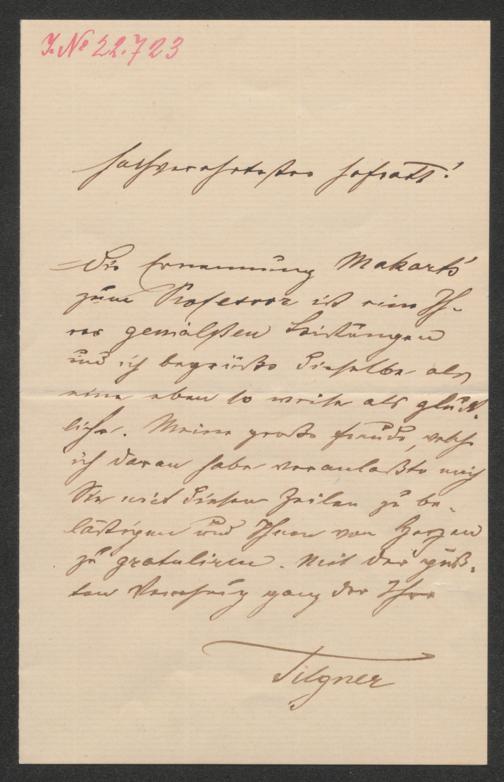 I.N. 22.723
Hochverehrtester Hofrath!
Die Ernennung Makart's
zum Professor ist eine Ih-
rer genialsten Leistungen
und ich begrüße dieselbe als
eine eben so weise als glück-
liche. Meine große Freude, welche
ich daran habe veranlaßte mich
Sie mit diesen Zeilen zu be-
lästigen und Ihnen von Herzen
zu gratuliren. Mit der größ-
ten Verehrung ganz der Ihre
Tilgner